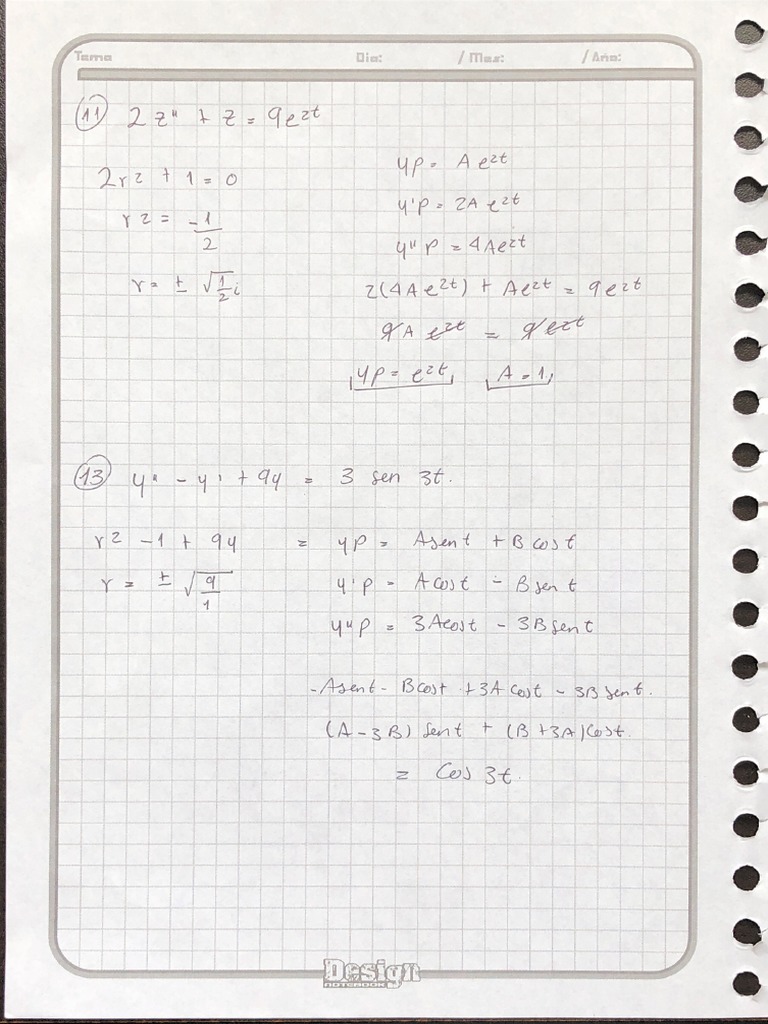 Tema Dia: / Mes: / Año:
11 2z" + z = 9e2t
2r2 + 1 = 0
r2 = -1/2
r = ± √1/2 i
yp = Ae2t
y'p = 2Ae2t
y"p = 4Ae2t
2(4Ae2t) + Ae2t = 9e2t
9A e2t = 9e2t
yp = e2t A = 1
13 y" - y' + 9y = 3 sen 3t.
r2 - 1 + 9y =
r = ± √9/1
yp = Asent + B cost
y'p = Acost - Bsent
y"p = 3Acost - 3Bsent
-Asent - Bcost + 3A cost - 3B sent.
(A - 3B) sent + (B + 3A) cost.
= cos 3t.
Design
NOTEBOOK